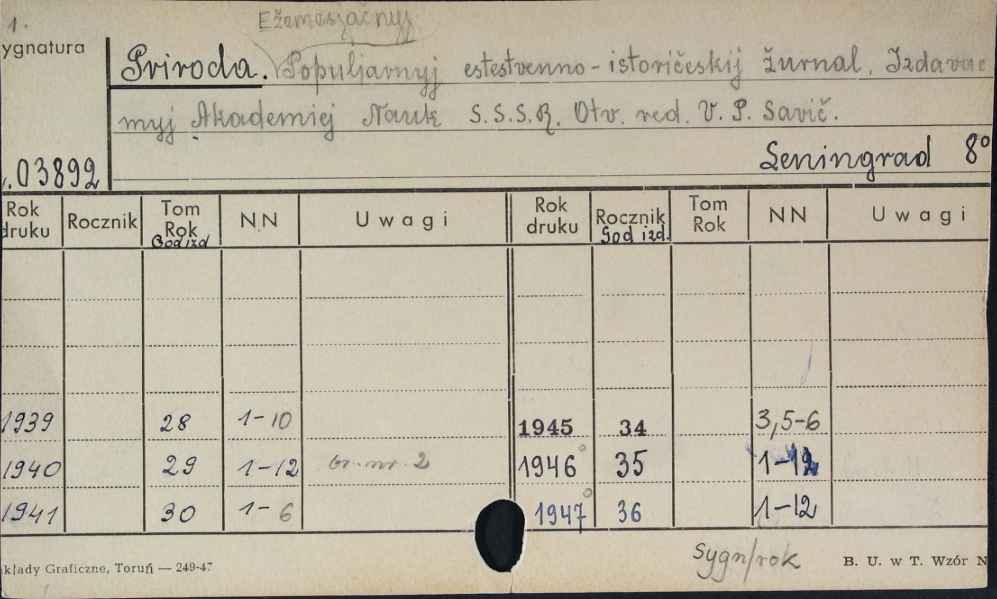 1.
Ežemesjačnyj
ygnatura
Priroda. Populjarnyj estestvenno-istoričeskij žurnal, Izdavae
myj Akademiej Nauk S.S.S.R. Otv. red. V. P. Savič.
Leningrad 8°
.03892
Rok druku Rocznik Tom Rok God izd N N Uwagi Rok druku Rocznik God izd. Tom Rok N N Uwagi
1939 28 1-10 1945 34 3,5-6
1940 29 1-12 br. nr. 2 1946° 35 1-12
1941 30 1-6 1947° 36 1-12
Sygn/rok
kłady Graficzne, Toruń — 249-47
B. U. w T. Wzór N